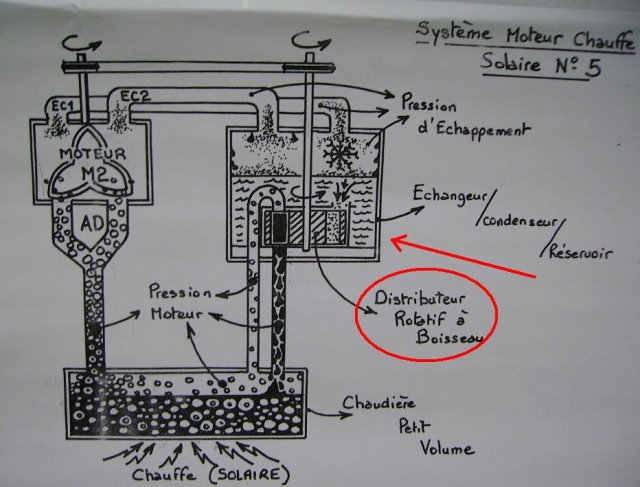 Système Moteur Chauffe
Solaire N° 5
EC1
EC2
Pression
d'Echappement
MOTEUR
M2
AD
Echangeur
/condenseur
/Réservoir
Pression
Moteur
Distributeur
Rotatif à
Boisseau
Chaudière
Petit
Volume
Chauffe (SOLAIRE)